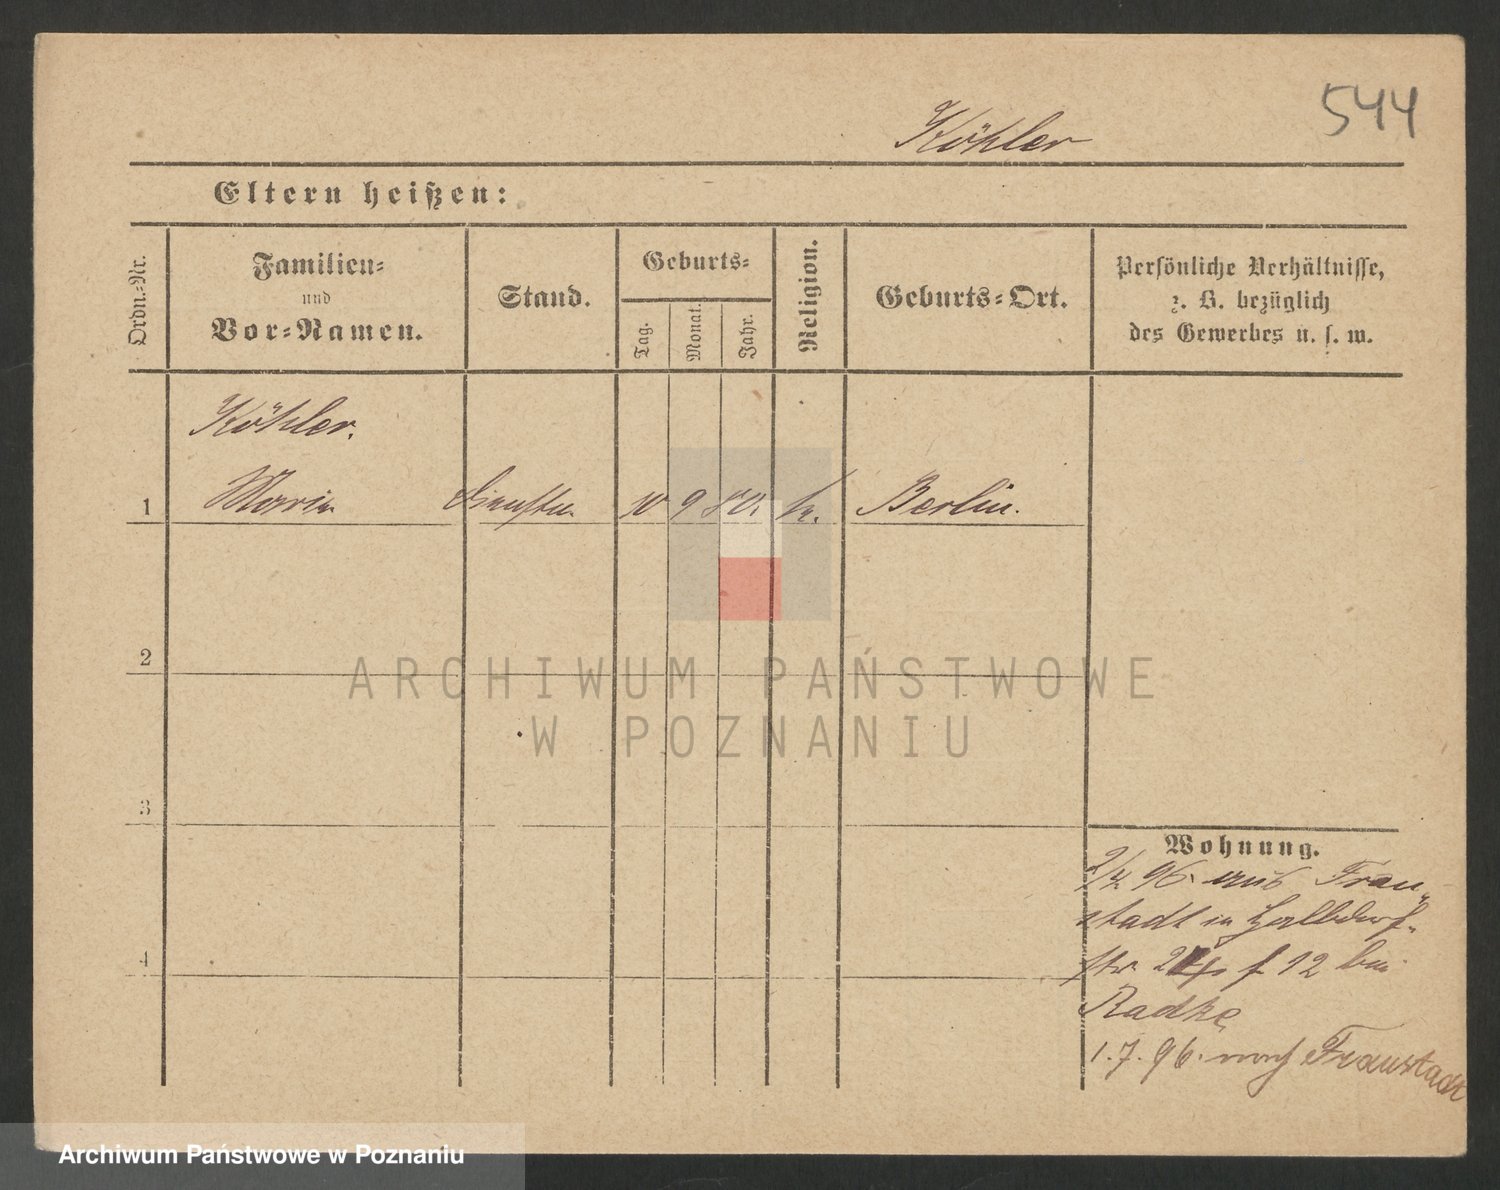 544
Köhler
Eltern heißen:
Ordn.-Nr.
Familien-
und
Vor-Namen.
Stand.
Geburts-
Tag.
Monat.
Jahr.
Religion.
Geburts-Ort.
Persönliche Verhältnisse,
z. B. bezüglich
des Gewerbes u. s. w.
Köhler.
1 Maria 9 80. Berlin.
2
ARCHIWUM PAŃSTWOWE
W POZNANIU
3
Wohnung.
96. aus Frau-
stadt in Halbdorf-
4
str 12 bei
Radke
1.7.96. nach Fraustadt
Archiwum Państwowe w Poznaniu